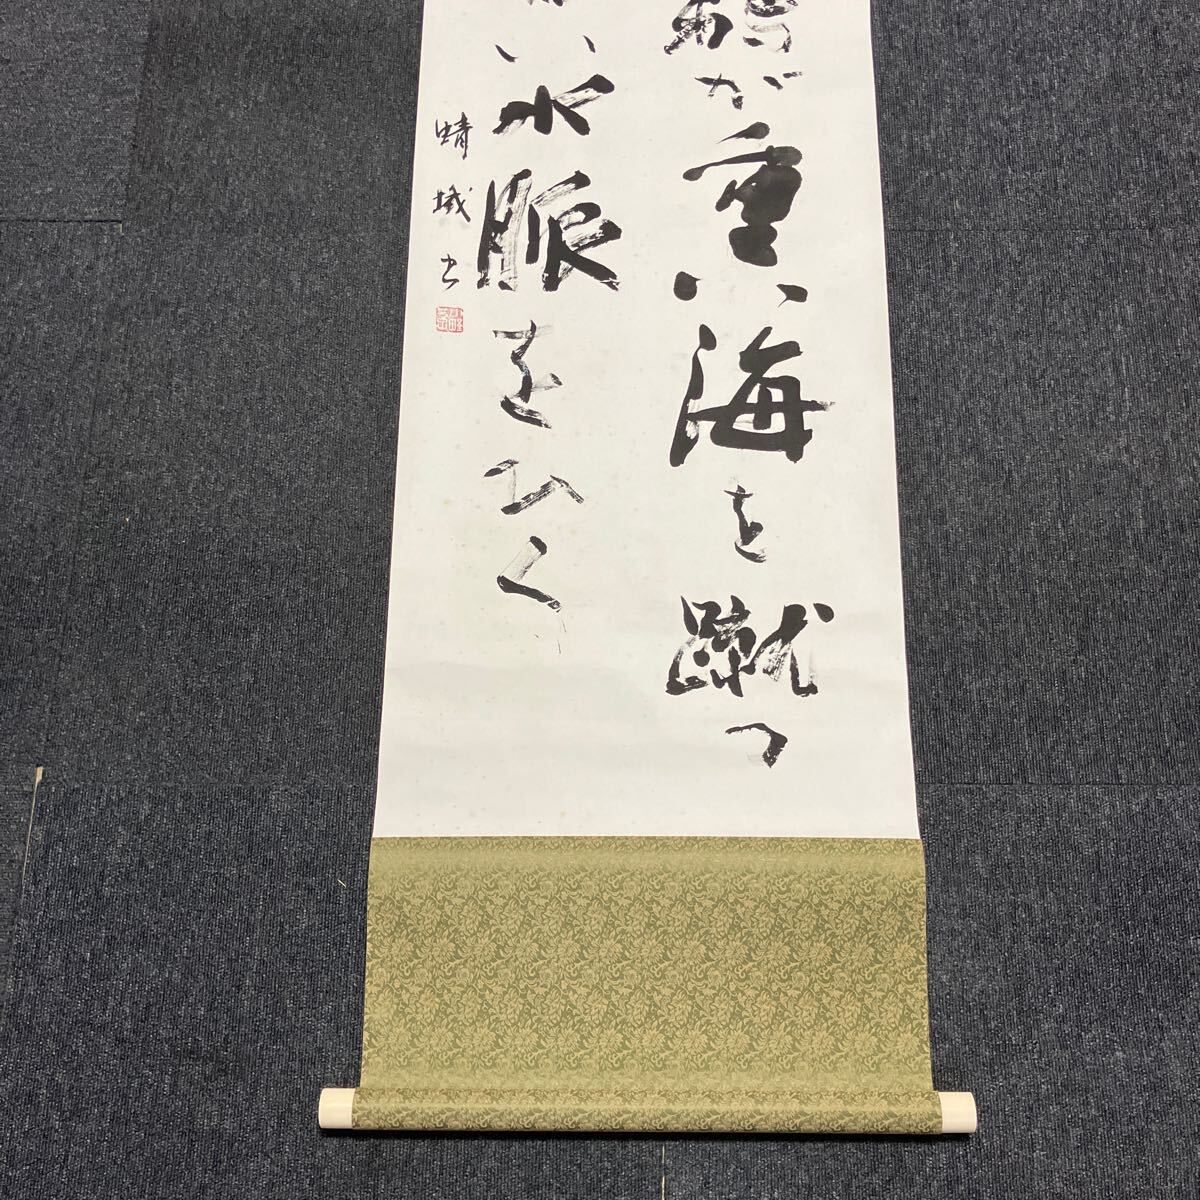 が重い海を蹴つ
い水脈をひく
蜻城書